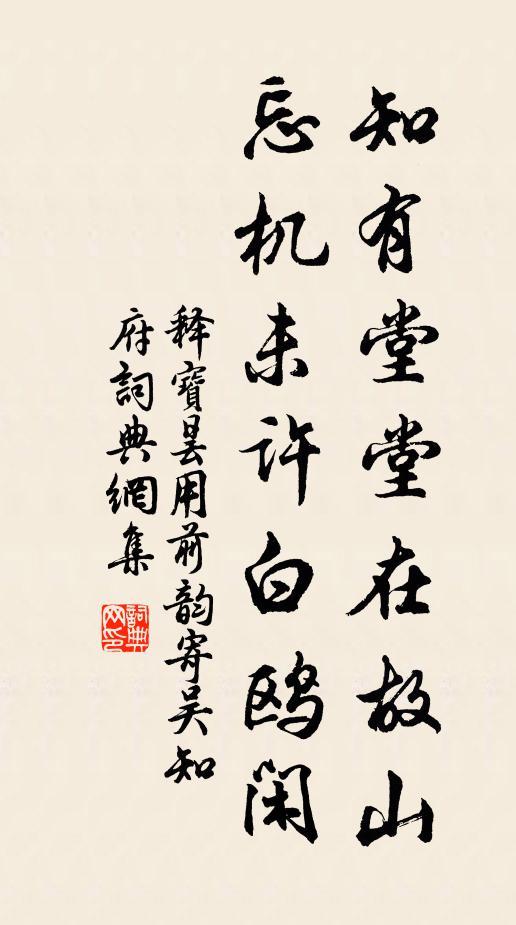 知有堂堂在故山
忘机未许白鸥闲
释寶昙用前韵寄吴知
府詞典網集
詞典网印